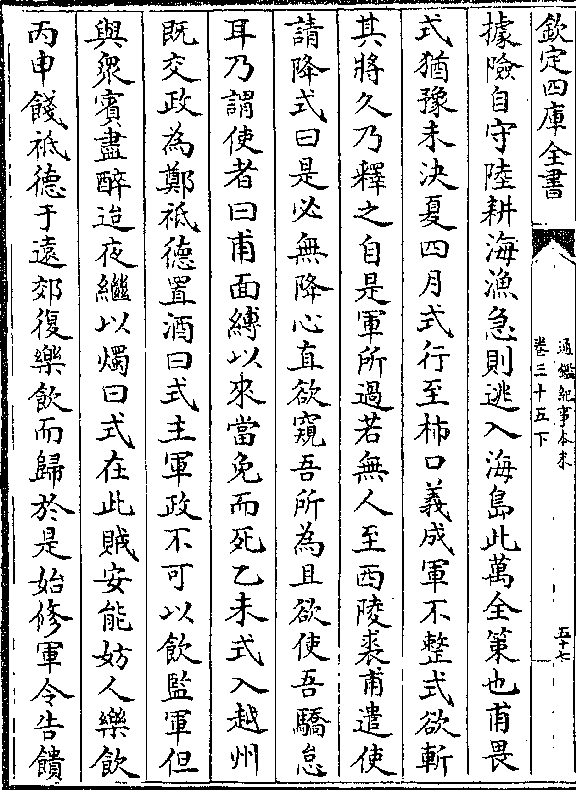 欽定四庫全書
通鑑紀事本末
卷三十五下
五十七
據險自守陸耕海漁急則逃入海島此萬全策也甫畏
式猶豫未決夏四月式行至柿口義成軍不整式欲斬
其將久乃釋之自是軍所過若無人至西陵裘甫遣使
請降式曰是必無降心直欲窺吾所為且欲使吾驕怠
耳乃謂使者曰甫面縛以來當免而死乙未式入越州
既交政為鄭祗德置酒曰式主軍政不可以飲監軍但
與衆賓盡醉迨夜繼以燭曰式在此賊安能妨人樂飲
丙申餞祗德于遠郊復樂飲而歸於是始修軍令告饋